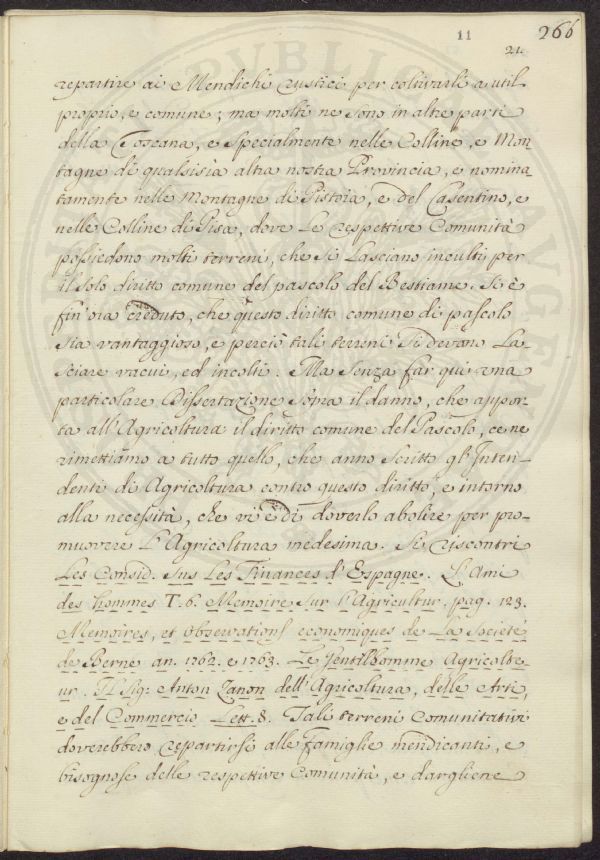 11
21.
266
repartire ai Mendichi rustici per coltivarli a util
proprio, e comune; ma molti ne sono in altre parti
della Toscana, e specialmente nelle Colline, e Mon
tagne di qualsisia altra nostra Provincia, e nomina
tamente nelle Montagne di Pistoia, e del Casentino, e
nelle Colline di Pisa, dove le respettive Comunità
possiedono molti terreni, che si lasciano inculti per
il solo diritto comune del pascolo del Bestiame. Si è
fin'ora creduto, che questo diritto comune di pascolo
sia vantaggioso, e perciò tali terreni si devano la
sciare vacui, ed incolti. Ma senza far qui una
particolare Dissertazione sopra il danno, che appor
ta all'Agricoltura il diritto comune del Pascolo, ce ne
rimettiamo a tutto quello, che anno scritto gl'Inten
denti di Agricoltura contro questo diritto, e intorno
alla necessità, che vi è di doverlo abolire per pro-
muovere l'Agricoltura medesima. Si riscontri
Les Consid. sus les Finances d'Espagne. L'Ami
des hommes T. 6. Memoire sur l'Agricultur. pag. 123.
Memoires, et observations economiques de la Societé
de Berne an. 1762. e 1763. Le Gentilhomme Agricolte
ur. Il Sig: Anton Zanon dell'Agricoltura, delle Arti,
e del Commercio Lett. 8. Tali terreni comunitativi
doverebbero repartirsi alle famiglie mendicanti, e
bisognose delle respettive Comunità, e dargliene